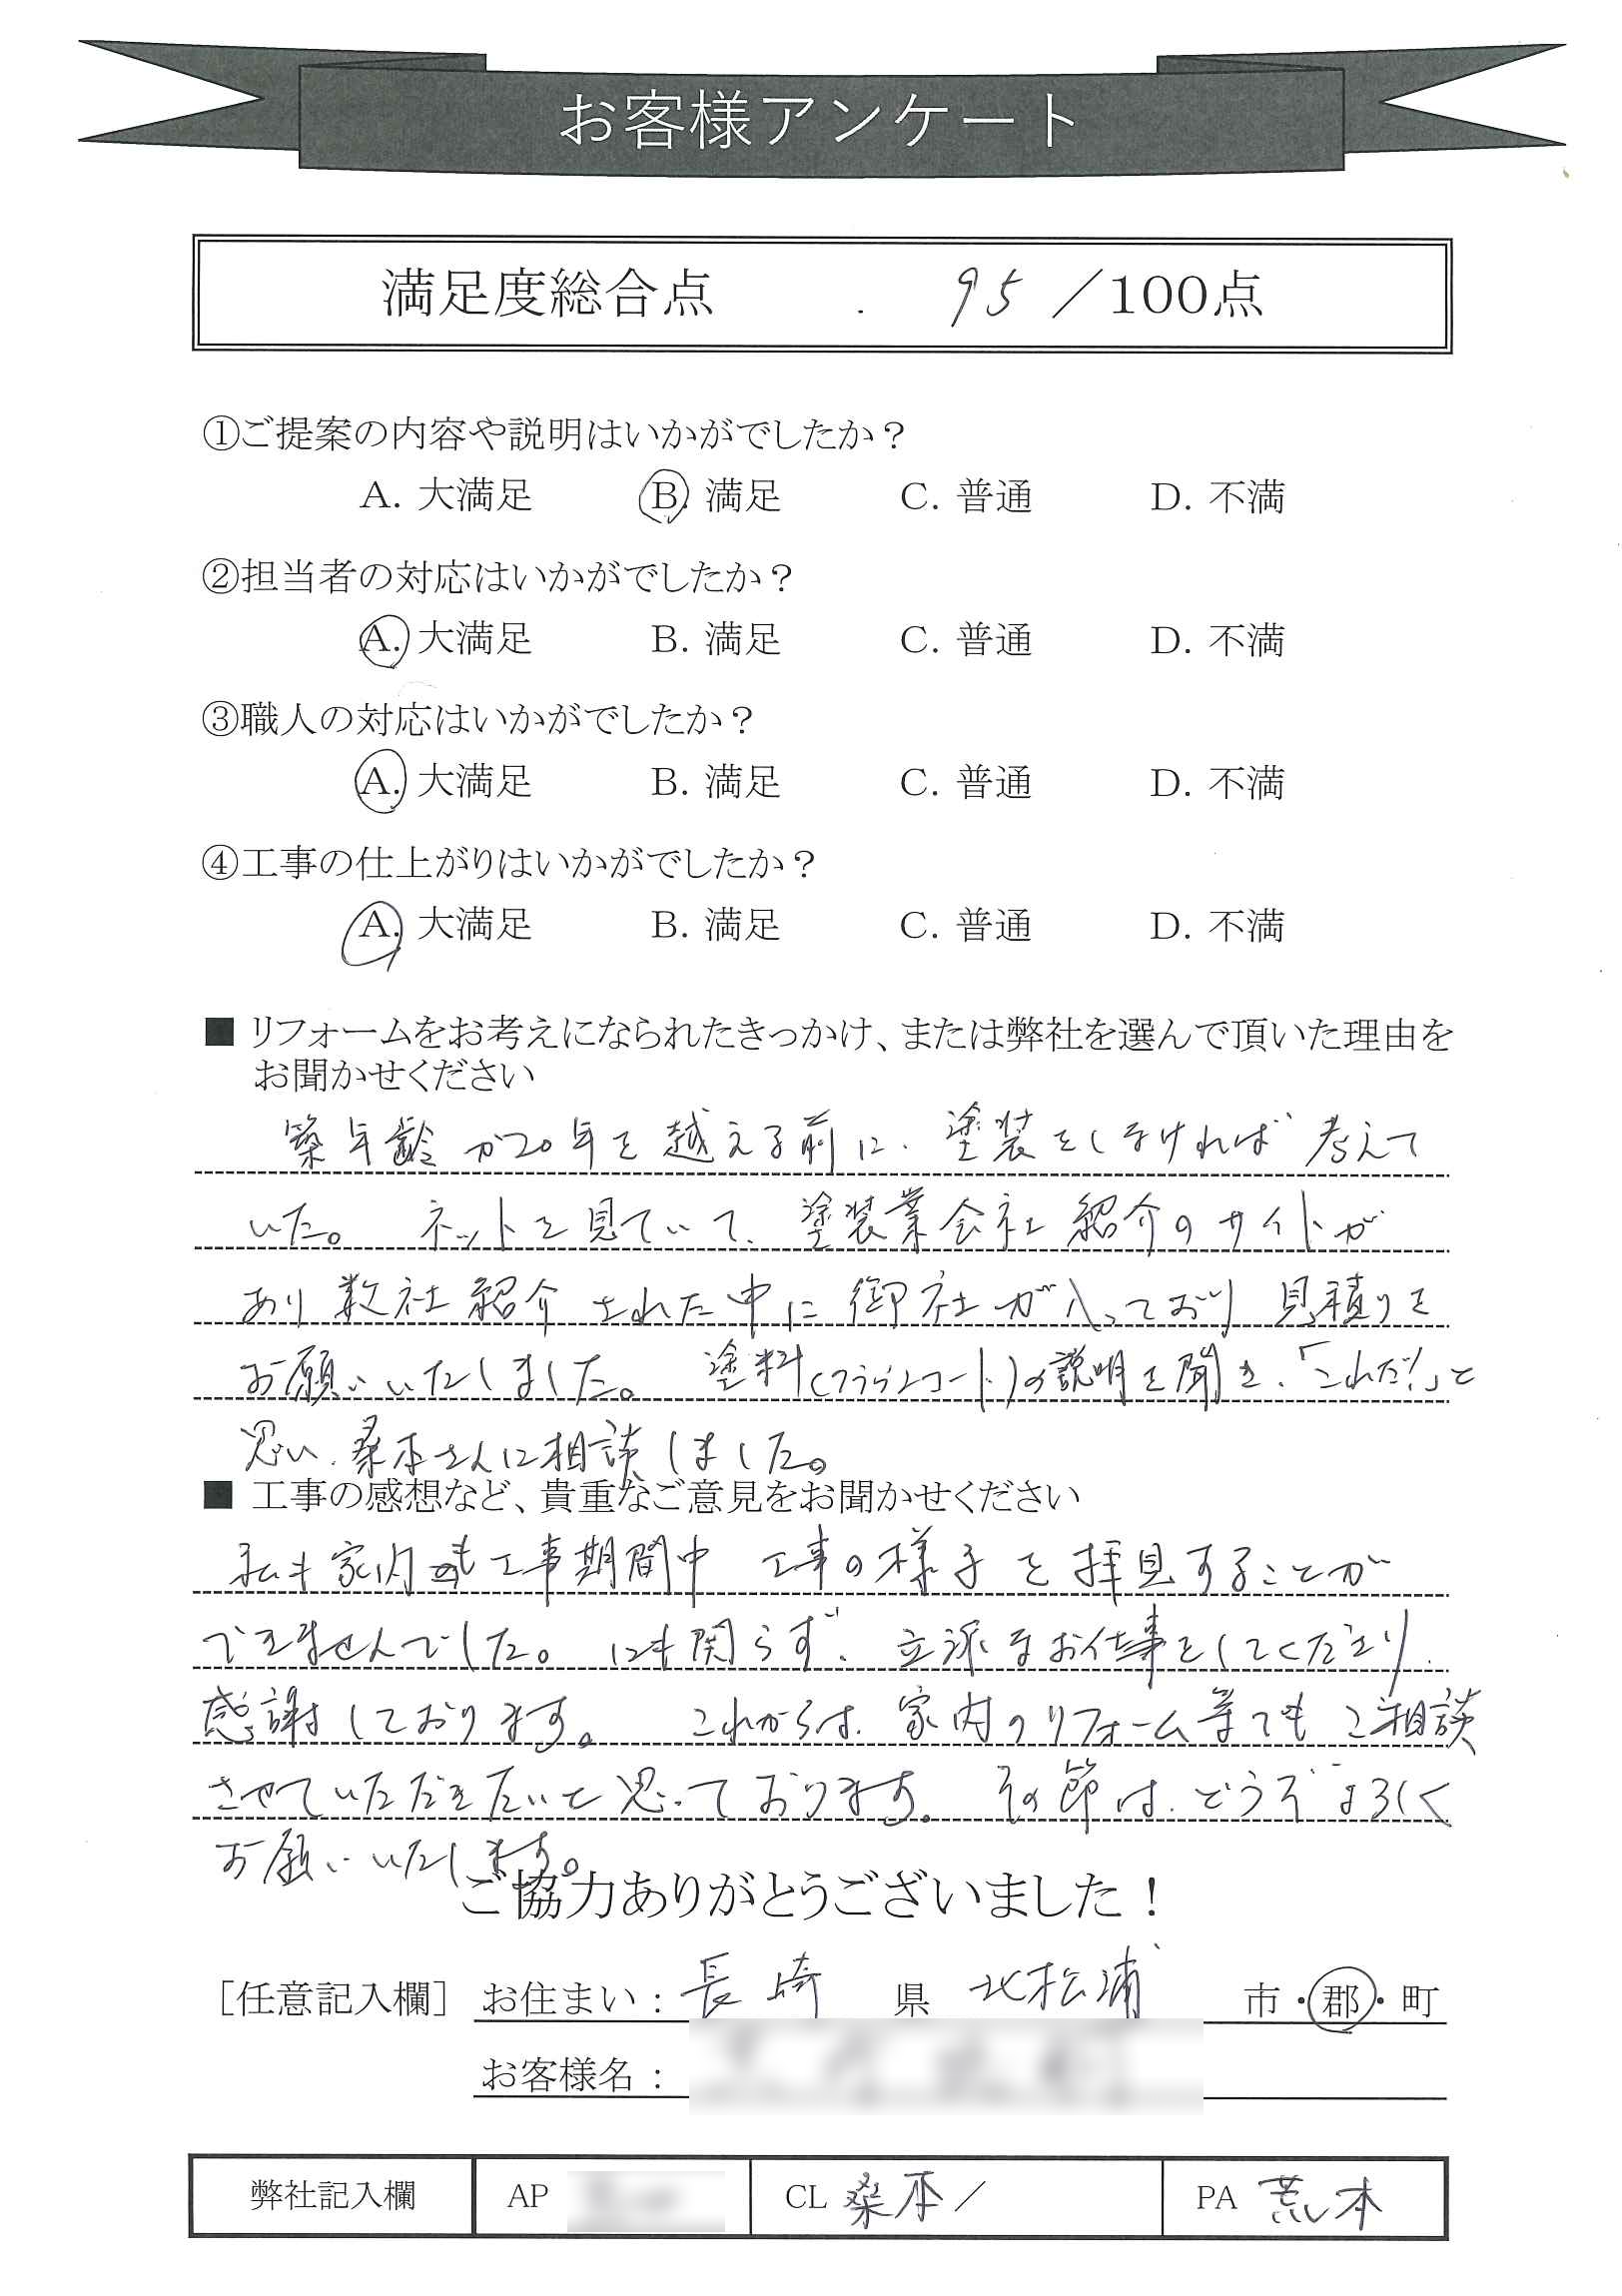 お客様アンケート
満足度総合点 . 95 ／100点
①ご提案の内容や説明はいかがでしたか？
A. 大満足 B. 満足 C. 普通 D. 不満
②担当者の対応はいかがでしたか？
A. 大満足 B. 満足 C. 普通 D. 不満
③職人の対応はいかがでしたか？
A. 大満足 B. 満足 C. 普通 D. 不満
④工事の仕上がりはいかがでしたか？
A. 大満足 B. 満足 C. 普通 D. 不満
■ リフォームをお考えになられたきっかけ、または弊社を選んで頂いた理由を
お聞かせください
築年齢が20年を越える前に、塗装をしなければ考えて
いた。 ネットを見ていて、塗装業会社紹介のサイトが
あり数社紹介された中に御社が入っており見積りを
お願いいたしました。 塗料(フラウンコート)の説明を聞き、「これだ!」と
思い、桑本さんに相談しました。
■ 工事の感想など、貴重なご意見をお聞かせください
私も家内も工事期間中 工事の様子を拝見することが
できませんでした。にも関らず、立派なお仕事をしてくださり、
感謝しております。 これからは、家内のリフォーム等でもご相談
させていただきたいと思っております。その節は、どうぞよろしく
お願いいたします。
ご協力ありがとうございました！
［任意記入欄］ お住まい：長崎 県 北松浦 市・郡・町
お客様名：
弊社記入欄 AP CL 桑本／ PA 荒木